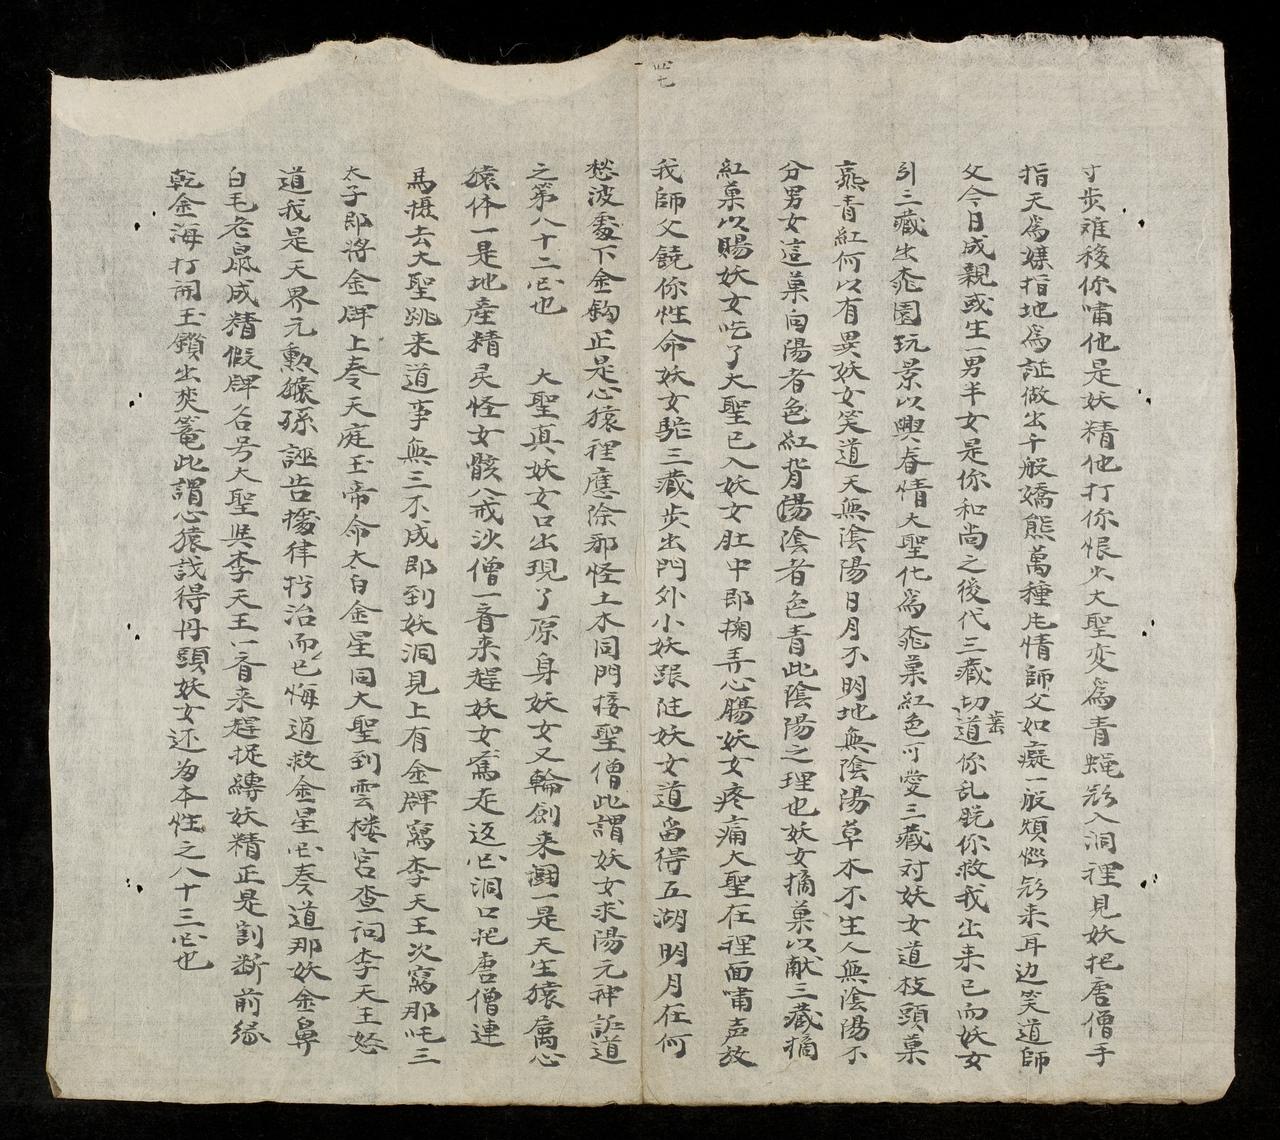 四七
寸步难移你嘯他是妖精他打你恨少大聖变爲青蝿飛入洞裡見妖把唐僧手
指天爲媒指地爲証做出千般嬌態萬種片情師父如癡一般煩惱飛来耳边笑道師
父今日成親或生一男半女是你和尚之後代三藏切齒道你乱脱你救我出来已而妖女
引三藏出桃園玩景以興春情大聖化爲桃菓紅色可愛三藏对妖女道枝頭菓
熟青紅何以有異妖女笑道天無陰陽日月不明地無陰陽草木不生人無陰陽不
分男女這菓向陽者色紅背陽陰者色青此陰陽之理也妖女摘菓以献三藏摘
紅菓以賜妖女吃了大聖已入妖女肚中即掬弄心腸妖女疼痛大聖在裡面嘯声放
我師父饒你性命妖女馱三藏步出門外小妖跟住妖女道留得五湖明月在何
愁波處下金鈎正是心猿裡應除邪怪土木同門接聖僧此謂妖女求陽元神訟道
之第八十二囬也 大聖真妖女口出現了原身妖女又輪劍来鬪一是天生猿属心
猿体一是地產精灵怪女骸八戒沙僧一斉来趕妖女奮走返囬洞口把唐僧連
馬摄去大聖跳来道事無三不成即到妖洞見上有金牌寫李天王次寫那吒三
太子即将金牌上奏天庭玉帝命太白金星同大聖到雲楼宮查问李天王怒
道我是天界元勲猿孫誣告援律拧治而已悔過救金星囬奏道那妖金鼻
白毛老鼠成精假牌名号大聖與李天王一斉来趕捉縛妖精正是割断前缘
乾金海打開玉鎖出樊篭此謂心猿識得丹頭妖女还为本性之八十三囬也